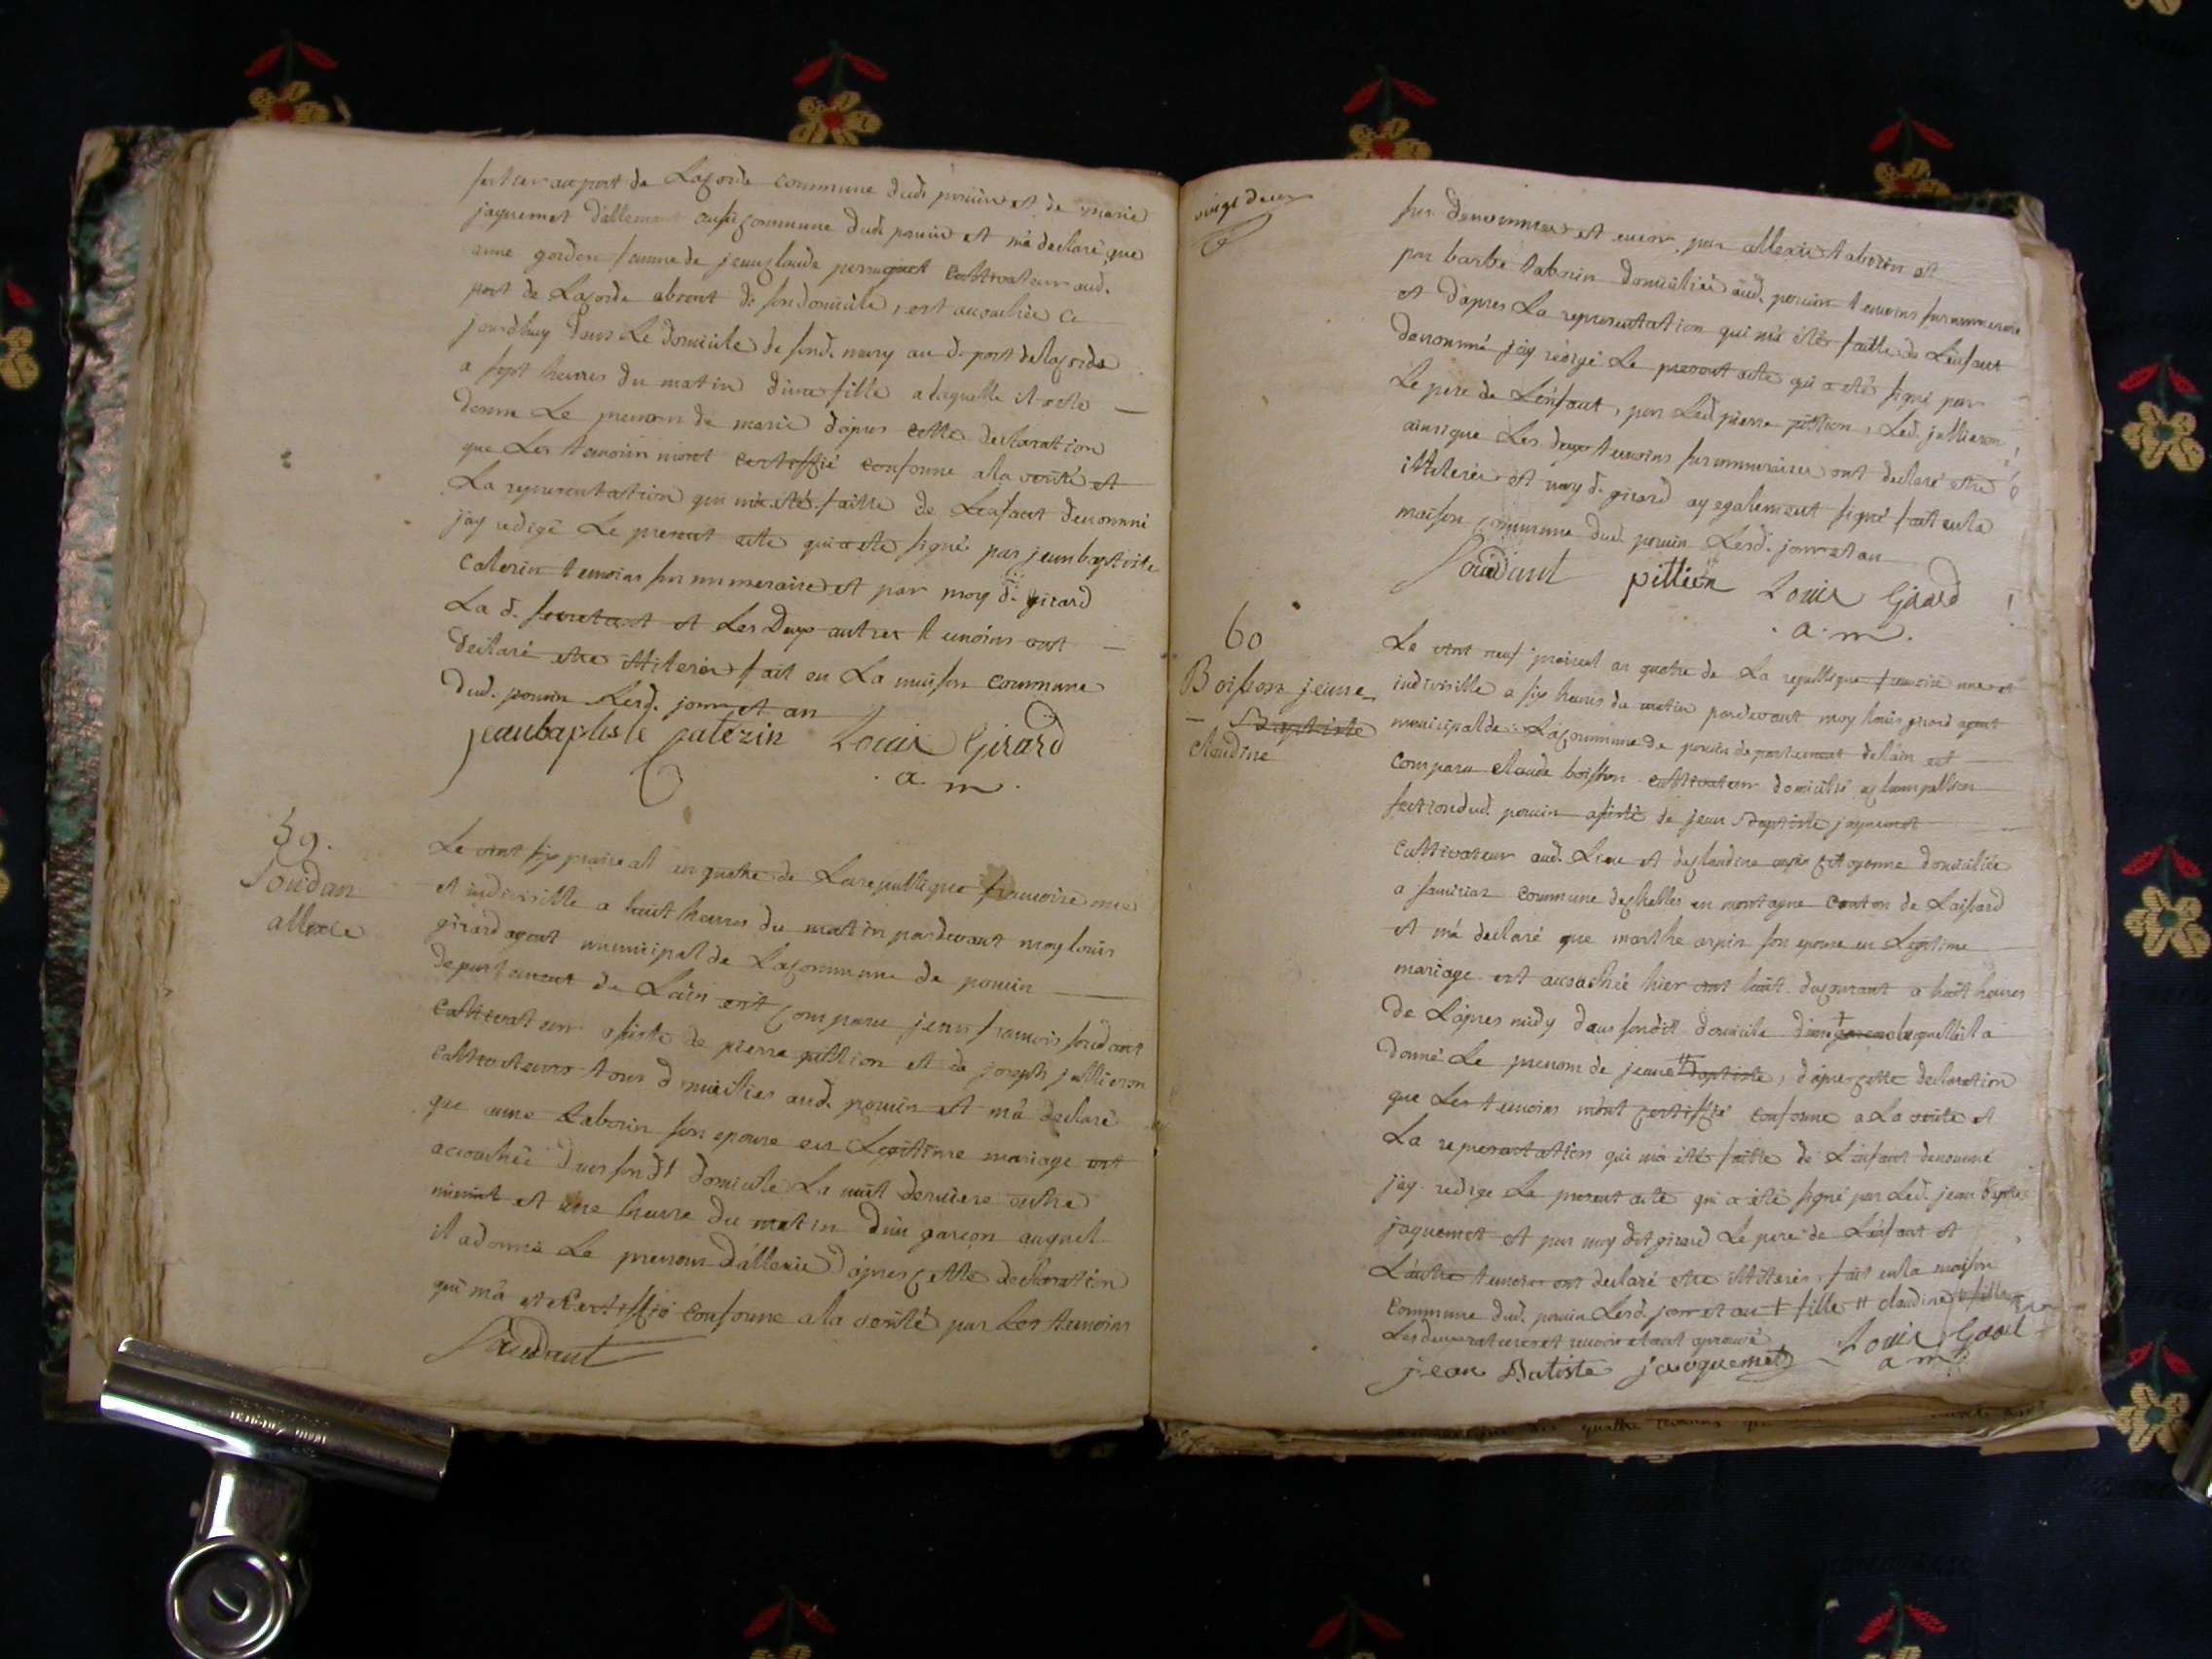 au port de Lagorde commune dud. pouin et de marie
jaquemet commune dud. pouin et m'a declaré que
anne gordon femme de jean claude perruquet cultivateur aud.
port de Lagorde absent de son domicile, est accouchée ce
jourdhuy dans Le domicile de sond. mary au d. port de lagorde
a sept heures du matin d'une fille a laquelle il a été
donné Le prenom de marie d'apres cette declaration
que Les temoins m'ont certiffié conforme a la verité et
La representation qui m'a été faitte de L'enfant denommé
jay redigé Le present acte qui a été signé par jean baptiste
Caterin temoins surnumeraire et par moy d. girard
La d. et Les Deux autres temoins ont
déclaré etre illiterés fait en La maison commune
dud. pouin Lesd. jour et an
jean baptiste catezin Louis Girard
a. m.
59.
Soudan
allexie
Le vint six praireal en quatre de La republique francoise une
et indivisible a huit heures du matin pardevant moy louis
girard agent municipal de La commune de pouin
departement de L'ain est comparu jean francois soudant
cultivateur assisté de pierre pittion et de joseph jullieron
cultivateurs tous domiciliés aud. pouin et m'a declaré
que anne tabouin son epouse en Legitime mariage est
accouchée dans son dt domicile La nuit derniere entre
minuit et une heure du matin d'un garcon auquel
il a donné Le prenom d'allexie d'apres cette declaration
qui m'a été certiffié conforme a la verité par Les temoins
Soudant
vingt deux
sus denommés et encor par allexie tabouin et
par barbe tabouin domiciliés aud. pouin temoins surnumeraire
et d'apres La representation qui m'a été faitte de L'enfant
denommé j'ay rédigé Le present acte qui a été signé par
Le pere de L'enfant, par Led. pierre pittion, Led. jullieron
ainsi que Les deux temoins surnumeraires ont declaré etre
illiterés et moy d. girard ay egalement signé fait en la
maison commune dud. pouin Lesd. jour et an
Soudant pittion Louis Girard
a. m.
60
Boisson jeanne
Baptiste
claudine
Le vint neuf prairial an quatre de La republique francoise une et
indivisible a six heures du matin pardevant moy louis girard agent
municipal de La commune de pouin departement de l'ain est
comparu claude boisson cultivateur domicilié
section dud. pouin assisté de jean Baptiste jaquemet
cultivateur aud. Lieu et de claudine arpin citoyenne domiciliée
a commune de chelles en montagne canton de
et m'a declaré que marthe arpin son epouse en Legitime
mariage est accouchée hier vint huit du courant a huit heures
de L'apres midy dans sondit domicile d'une + garcon laquelle il a
donné Le prenom de jeane # Baptiste, d'apres cette declaration
que Les temoins m'ont certiffié conforme a La verité et
La representation qui m'a été faitte de L'enfant denommé
j'ay redigé Le present acte qui a été signé par Led. jean Baptiste
jaquemet et par moy dit girard Le pere de L'enfant et
L'autre temoins ont declaré etre illiterés, fait en la maison
commune dud. pouin Lesd. jour et an + fille # claudine
Les deux ratures et renvois etant aprouvé
jean Batiste jacquemet Louis Girard
a m